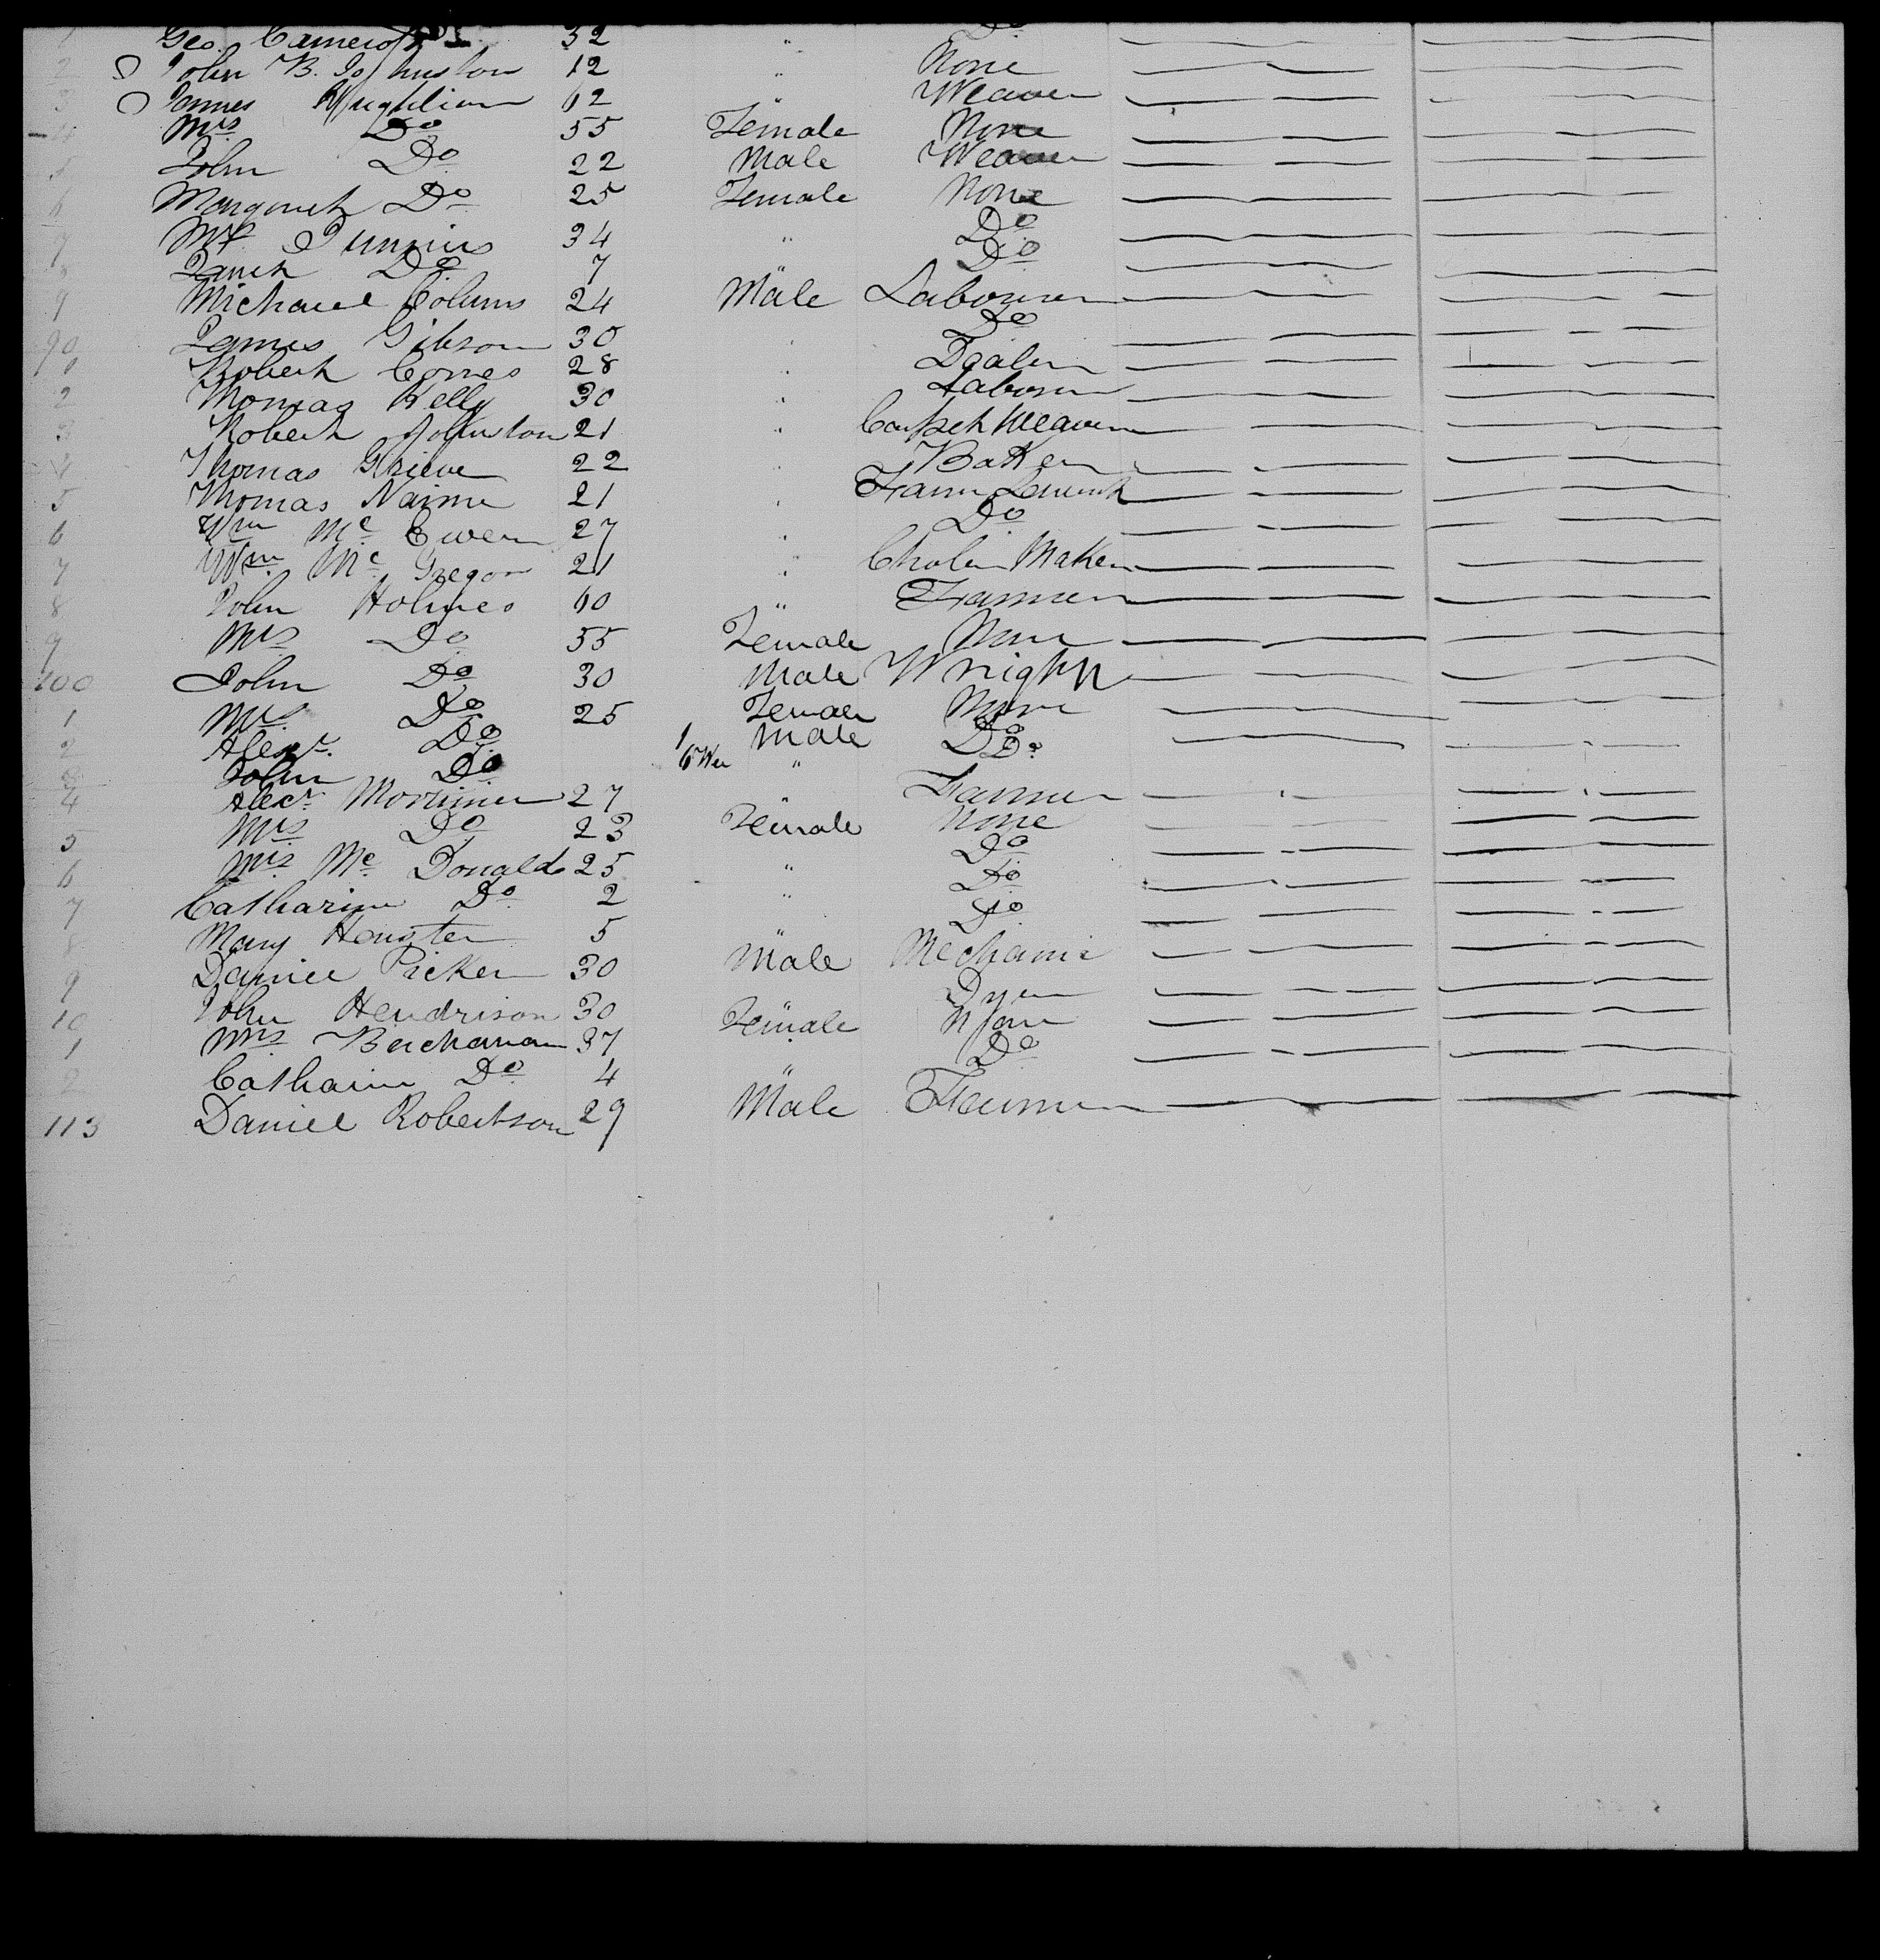 1 Geo. Cameron 32 " Do
2 John B. Johnston 12 " None
3 James 62 " Weaver
4 Mrs Do 55 Female None
5 John Do 22 Male Weaver
6 Margaret Do 25 Female None
7 34 " Do
Do 7 " Do
9 Michael Colums 24 Male Labourer
90 James Gibson 30 " Do
1 Robert Comes 28 " Dealer
2 Thomas Kelly 30 " Labourer
3 Robert Johnston 21 " Carpet Weaver
4 Thomas Grieve 22 " Baker
5 Thomas Nairne 21 " Farm Servant
6 Wm Mc Ewen 27 " Do
7 Wm Mc Gregor 21 " Maker
8 John Holmes 60 " Farmer
9 Mrs Do 55 Female None
100 John Do 30 Male Wright
1 Mrs Do 25 Female None
2 Alexr. Do 1 Male Do
3 John Do 6 We " Do
4 Alexr. Mortimer 27 " Farmer
5 Mrs Do 23 Female None
6 Mrs Mc Donald 25 " Do
7 Catharine Do 2 " Do
8 Mary Hengster 5 " Do
9 Daniel Picker 30 Male Mechanic
10 John Hendrison 30 " Dyer
1 Mrs Buchanan 37 Female None
2 Catharine Do 4 " Do
113 Daniel Robertson 29 Male Farmer